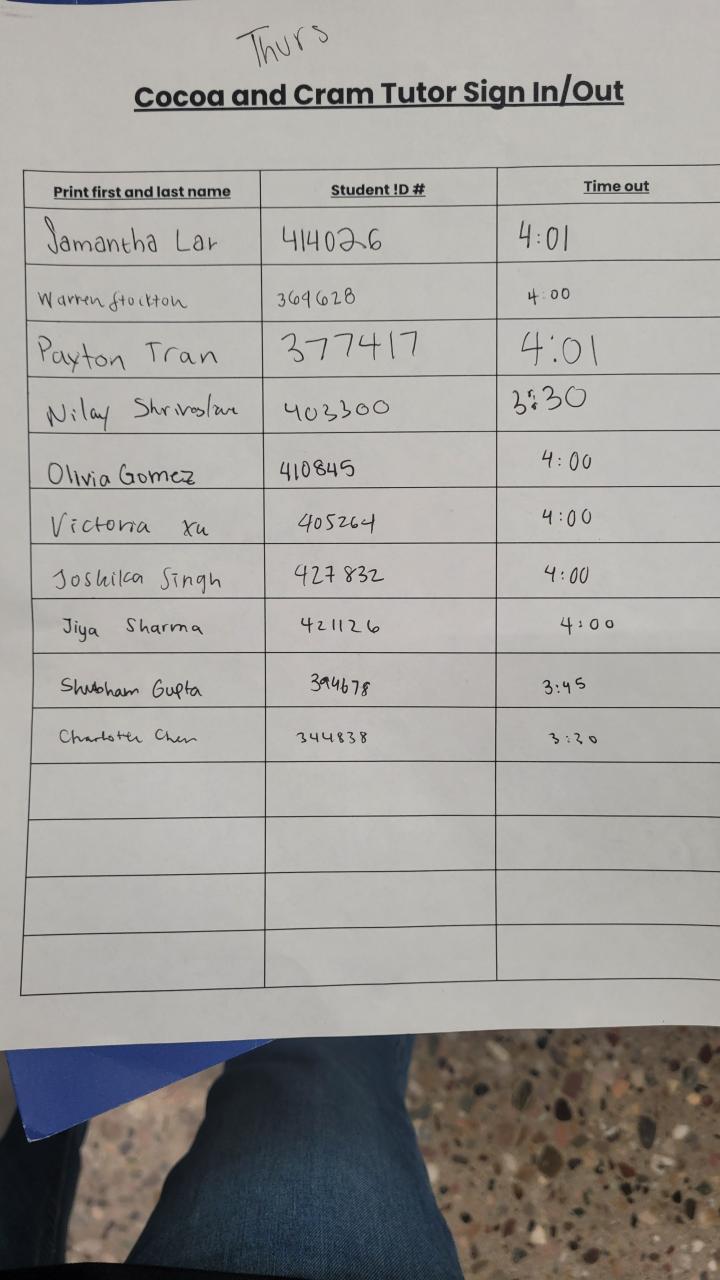 Thurs
Cocoa and Cram Tutor Sign In/Out
Print first and last name Student !D # Time out
Samantha Lar 414026 4:01
Warren Stockton 369628 4:00
Payton Tran 377417 4:01
Nilay 403300 3:30
Olivia Gomez 410845 4:00
Victoria Xu 405264 4:00
Joshika Singh 427832 4:00
Jiya Sharma 421126 4:00
Shubham Gupta 394678 3:45
Charlotte Chen 344838 3:30